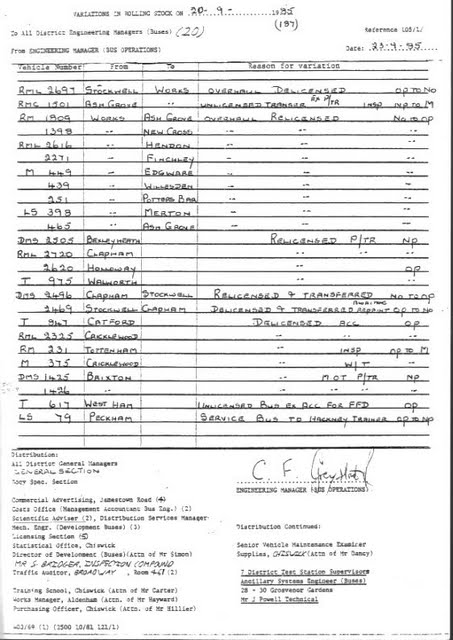 VARIATIONS IN ROLLING STOCK ON 20-9- 1985
(187)
To All District Engineering Managers (Buses) (20) Reference LOS/1/
From ENGINEERING MANAGER (BUS OPERATIONS) Date: 23-9-85
Vehicle Number From To Reason for variation
RML 2697 STOCKWELL WORKS OVERHAUL DELICENSED OP TO NO
RMC 1501 ASH GROVE -- UNLICENSED TRANSFER EX P/TR INSP NP TO M
RM 1909 WORKS ASH GROVE OVERHAUL RELICENSED NO TO OP
1398 -- NEW CROSS -- -- --
RML 2616 -- HENDON -- -- --
2271 -- FINCHLEY -- -- --
M 449 -- EDGWARE -- -- --
439 -- WILLESDEN -- -- --
251 -- POTTERS BAR -- -- --
LS 398 -- MERTON -- -- --
465 -- ASH GROVE -- -- --
DMS 2505 BEXLEYHEATH RELICENSED P/TR NP
RML 2720 CLAPHAM -- -- --
2620 HOLLOWAY -- -- OP
T 975 WALWORTH -- -- --
DMS 2496 CLAPHAM STOCKWELL RELICENSED & TRANSFERRED NO TO OP
2469 STOCKWELL CLAPHAM DELICENSED & TRANSFERRED AWAITING REPAINT OP TO NO
T 947 CATFORD DELICENSED ACC OP
RML 2325 CRICKLEWOOD -- -- --
RM 231 TOTTENHAM -- INSP OP TO M
M 375 CRICKLEWOOD -- W/T --
DMS 1425 BRIXTON -- MOT P/TR NP
1426 -- -- -- --
T 617 WEST HAM UNLICENSED BUS EX ACC FOR FFD OP
LS 79 PECKHAM SERVICE BUS TO HACKNEY TRAINER OP TO NP
Distribution:
All District General Managers
GENERAL SECTION
Tory Spec. Section
C. F.
ENGINEERING MANAGER (BUS OPERATIONS)
Commercial Advertising, Jamestown Road (4)
Costs Office (Management Accountant Bus Eng.) (2)
Scientific Adviser (2), Distribution Services Manager
Mech. Engr. (Development Buses) (3)
Licensing Section (5)
Statistical Office, Chiswick
Director of Development (Buses)(Attn of Mr Simon)
MR S. BRIDGER, INSPECTION COMPOUND
Traffic Auditor, BROADWAY, Room 461 (2)
Training School, Chiswick (Attn of Mr Carter)
Works Manager, Aldenham (Attn of Mr Hayward)
Purchasing Officer, Chiswick (Attn of Mr Hillier)
Distribution Continued:
Senior Vehicle Maintenance Examiner
Supplies, CHISWICK (Attn of Mr Dancy)
7 District Test Station Supervisors
Ancillary Systems Engineer (Buses)
28 - 30 Grosvenor Gardens
Mr J Powell Technical
(1) (1500 10/81 121/1)